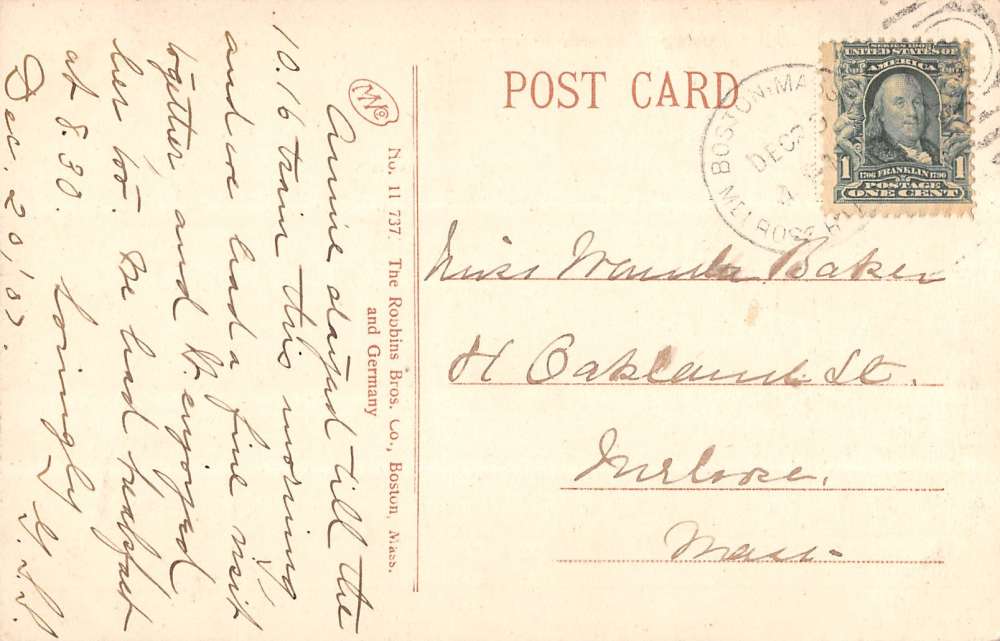 POST CARD
BOSTON, MASS.
DEC 23
MELROSE
SERIES 1902
UNITED STATES OF
AMERICA
1 1
1706 FRANKLIN 1790
POSTAGE
ONE CENT
Miss Wanda Baker
Oakland St.
Melrose.
Mass.
No. 11 737. The Robbins Bros. Co., Boston, Mass.
and Germany
Annie stayed till the
10.16 train this morning
and we had a fine visit
together and enjoyed
her too. We had breakfast
at 8.30. Lovingly
Dec. 20, '07.